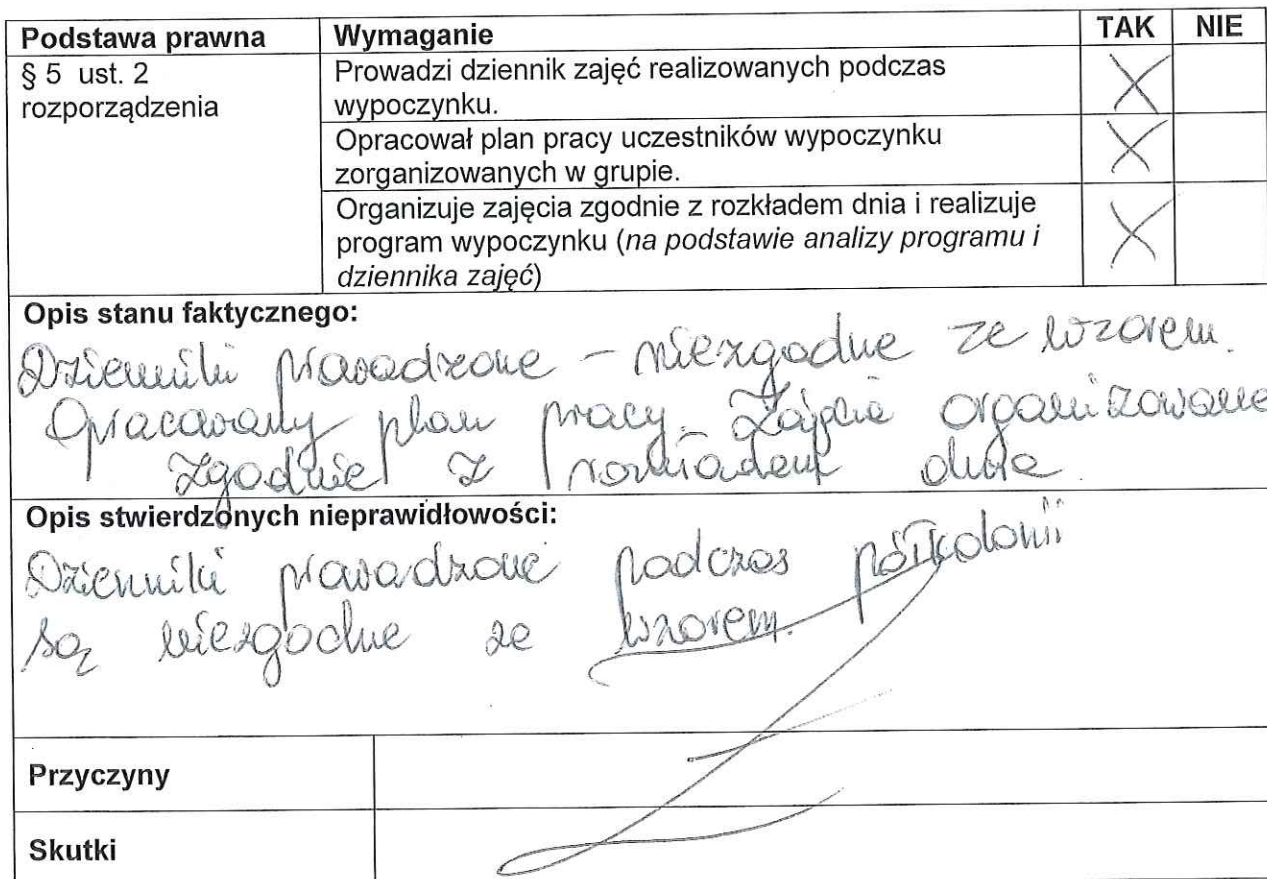 Podstawa prawna Wymaganie TAK NIE
§ 5 ust. 2 Prowadzi dziennik zajęć realizowanych podczas
rozporządzenia wypoczynku. X
Opracował plan pracy uczestników wypoczynku
zorganizowanych w grupie. X
Organizuje zajęcia zgodnie z rozkładem dnia i realizuje
program wypoczynku (na podstawie analizy programu i X
dziennika zajęć)
Opis stanu faktycznego:
Dzienniki prowadzone - niezgodne ze wzorem.
Opracowany plan pracy. Zajęcia organizowane
zgodnie z rozkładem dnia.
Opis stwierdzonych nieprawidłowości:
Dzienniki prowadzone podczas półkolonii
są niezgodne ze wzorem.
Przyczyny
Skutki